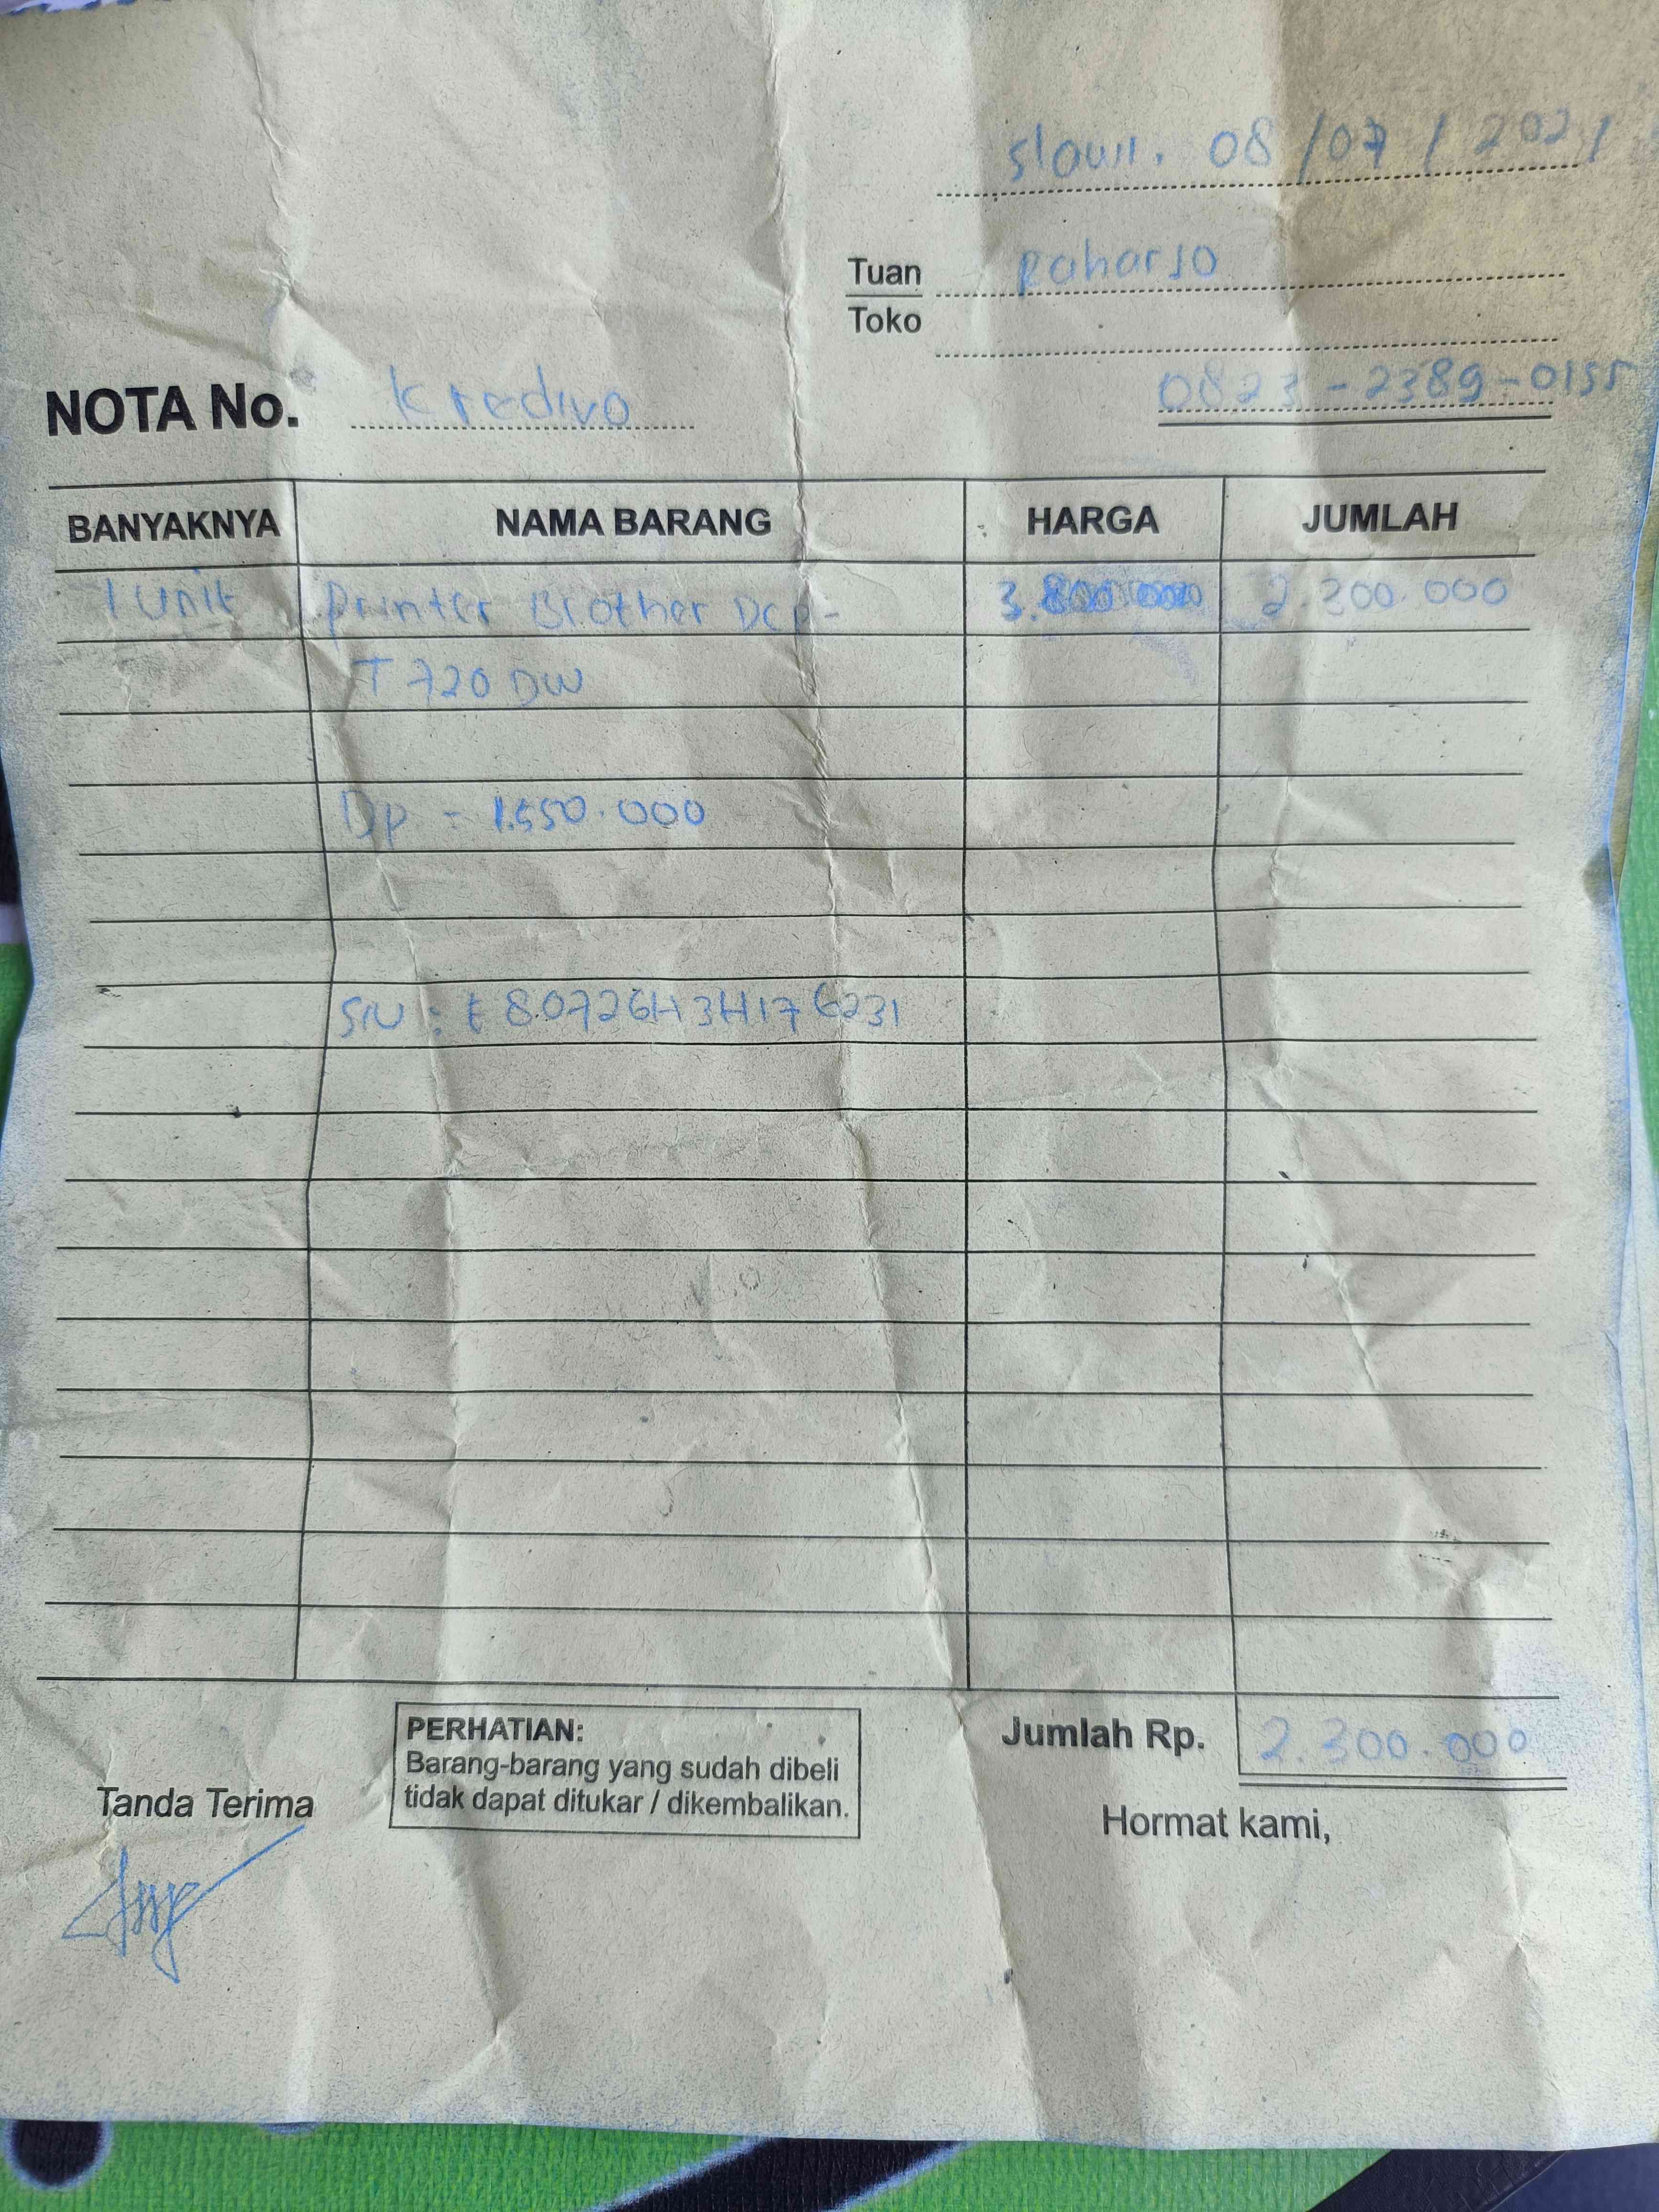 Slawi. 08/07/2021
Tuan Raharjo
Toko
0823-2389-0155
NOTA No. Kredivo
BANYAKNYA NAMA BARANG HARGA JUMLAH
1 Unit Printer Brother Dcp- 3.800.000 2.300.000
T720 DW
Dp = 1.550.000
S/N : E80726H3H176231
PERHATIAN:
Barang-barang yang sudah dibeli
tidak dapat ditukar / dikembalikan.
Jumlah Rp. 2.300.000
Tanda Terima
Hormat kami,